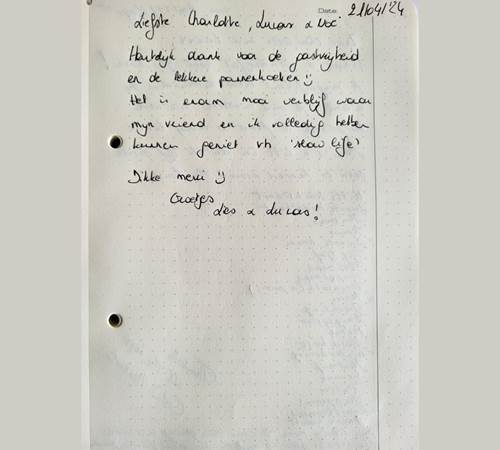 Date: 21/04/24
Liefste Charlotte, Lucas &
Hartelijk dank voor de gastvrijheid
en de lekkere pannenkoeken :)
Het is enorm mooi verblijf waar
mijn vriend en ik volledig hebben
kunnen geniet vh 'slow life'
Dikke merci :)
Groetjes
Lies & Lucas!